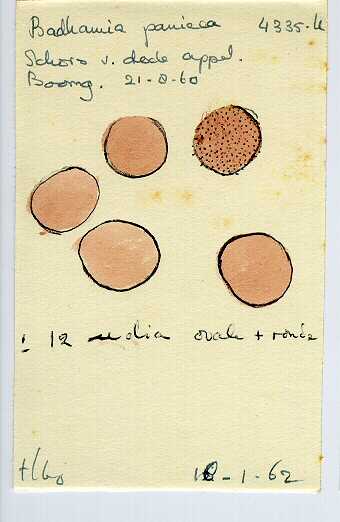 Badhamia panicea 4335-h
Schors v. dode appel.
Boomg. 21-8-60
± 12 media ovale + ronde
18-1-62